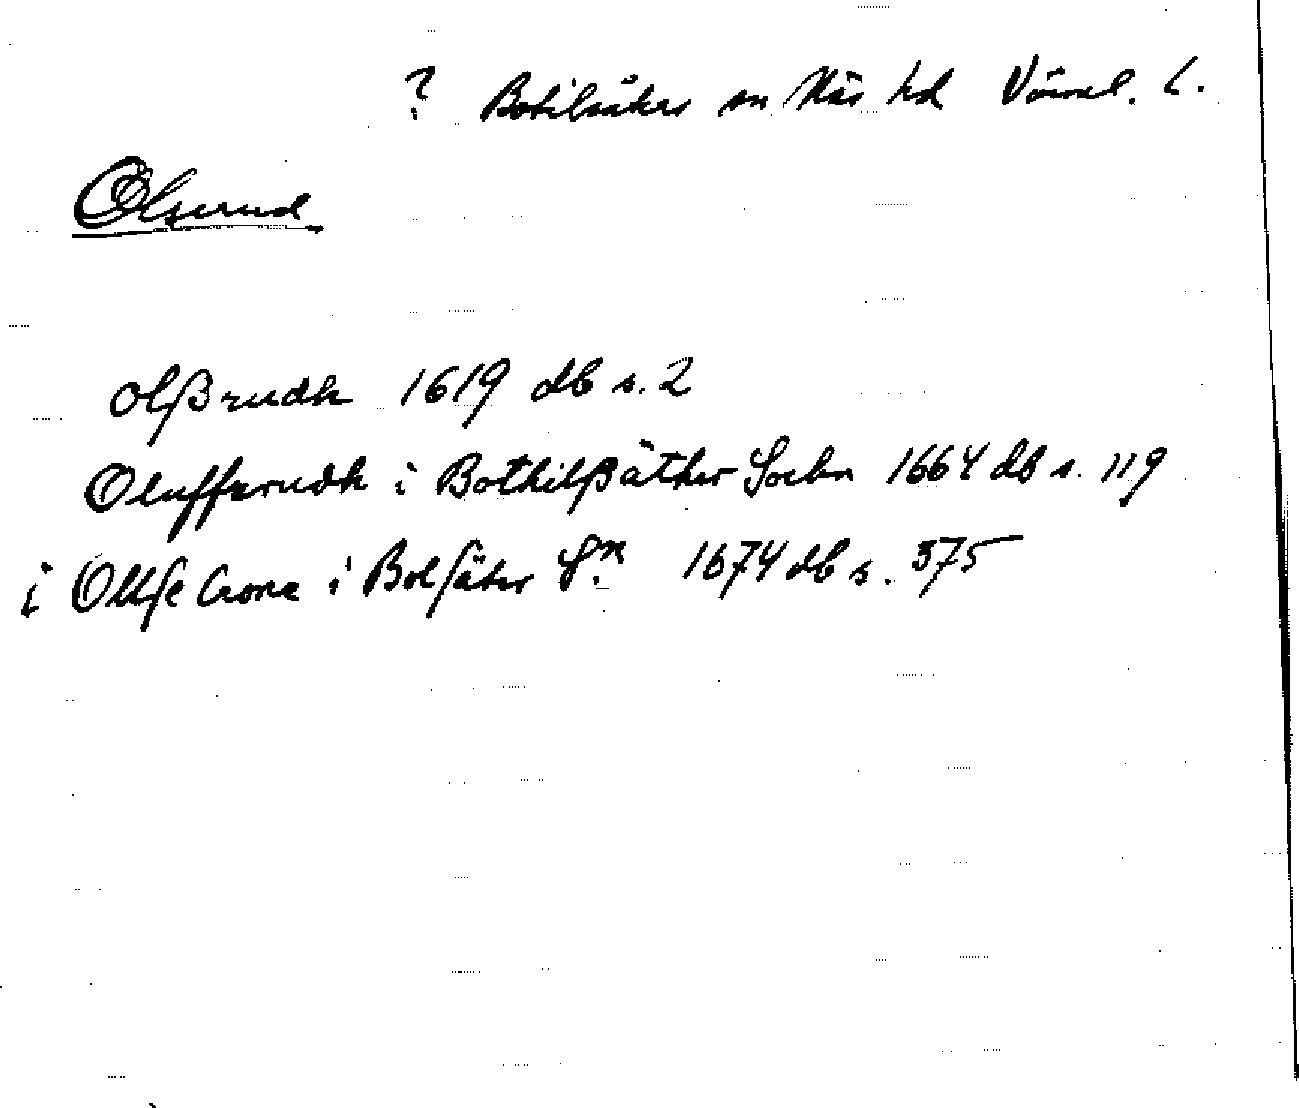 ? Botilsäter sn Näs hd Värml. L.
Olserud
olßrudh 1619 db s. 2
Oluffzrudh i Bothilßäther Sochn 1664 db s. 119
i Ollße i Bolsäter Sn 1674 db s. 375